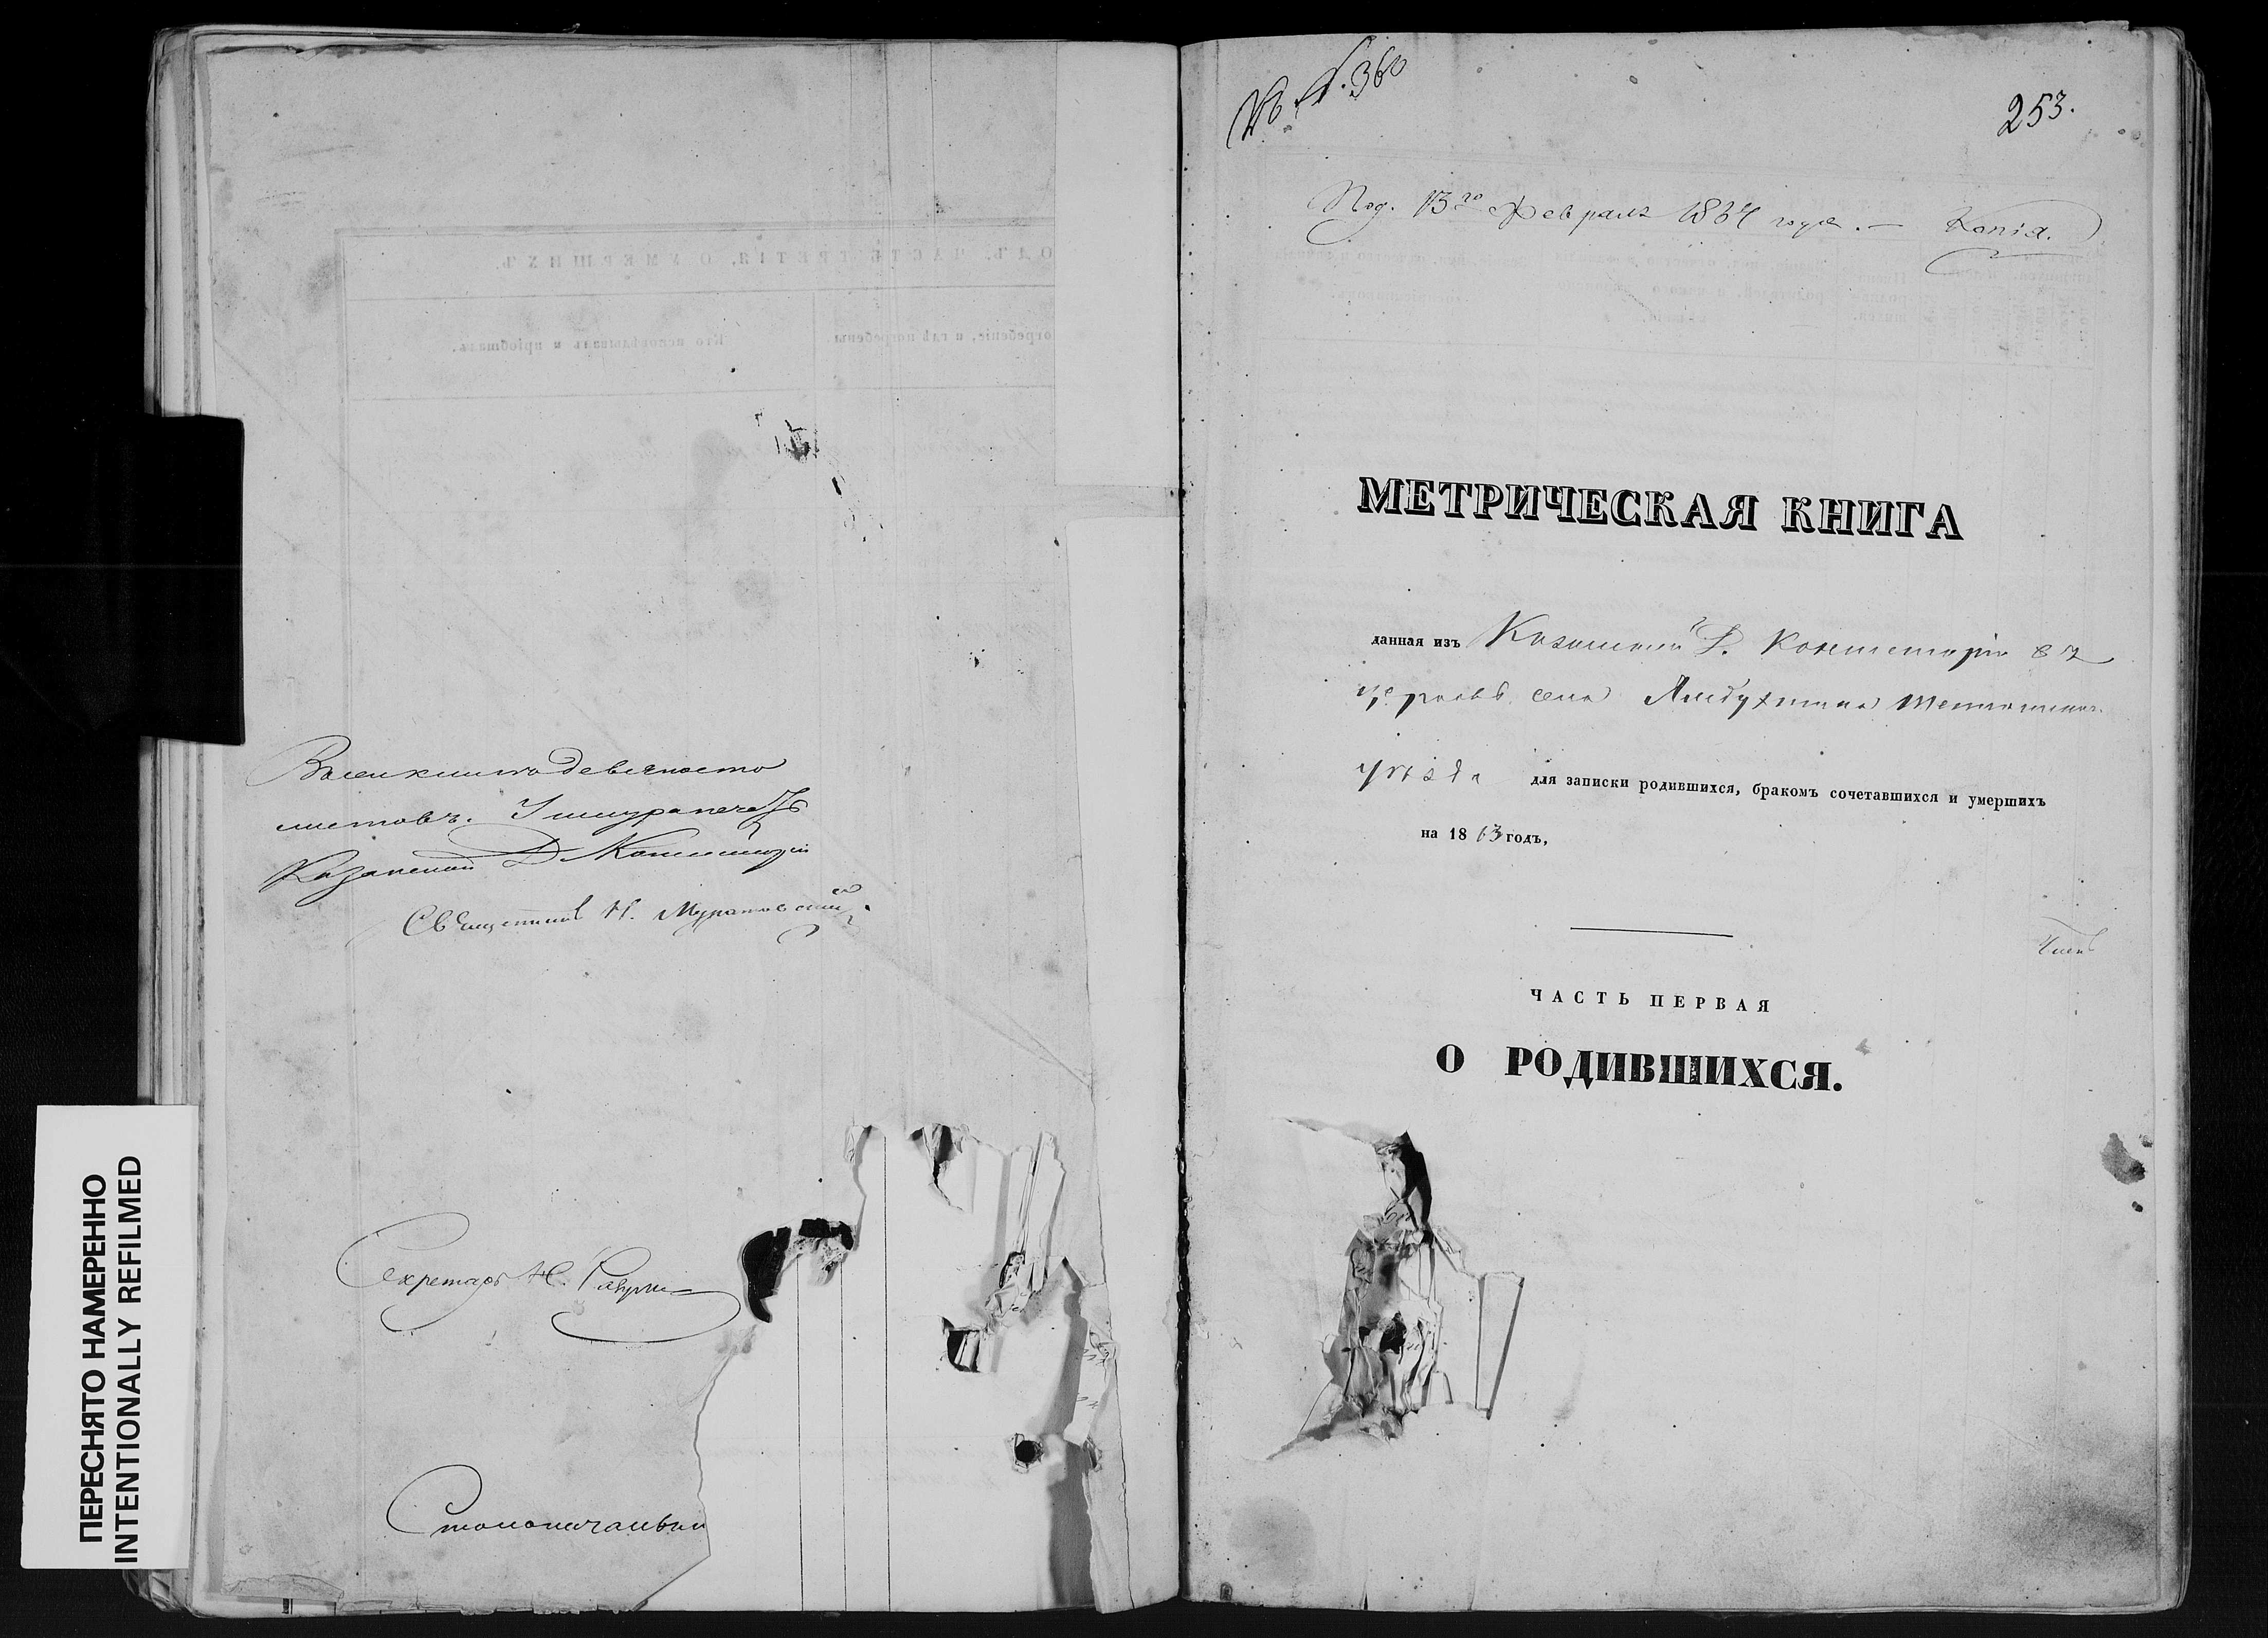 Въ сей книге девяносто
листовъ. У шнура печать
Казанской Д Консисторіи
Священникъ Н.
Секретарь Н.
Столоначальни
ПЕРЕСНЯТО НАМЕРЕННО
INTENTIONALLY REFILMED
№ 360
253.
Под. 13го Февраля 1864 года. — Копія.
МЕТРИЧЕСКАЯ КНИГА
данная изъ Казанской Д. Консисторіи въ
церковь села
уѣзда для записки родившихся, бракомъ сочетавшихся и умершихъ
на 1863 годъ,
Членъ
ЧАСТЬ ПЕРВАЯ
О РОДИВШИХСЯ.